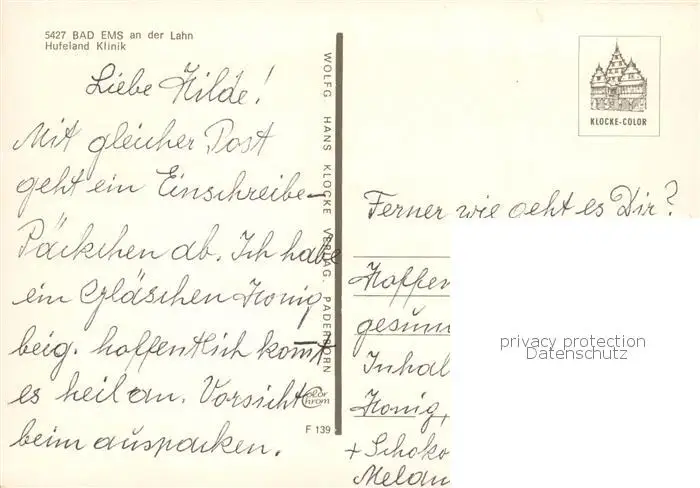 5427 BAD EMS an der Lahn
Hufeland Klinik
Liebe Hilde!
Mit gleicher Post
geht ein Einschreibe-
Päckchen ab. Ich habe
ein Gläschen Honig
beig. hoffentlich kommt
es heil an. Vorsicht
beim auspacken.
WOLFG. HANS KLOCKE VERLAG. PADERBORN
Color
Chrom
F 139
KLOCKE-COLOR
Ferner wie geht es Dir?
Hoffen
gesun
Inhal
Honig,
+ Schoko
Melan
privacy protection
Datenschutz